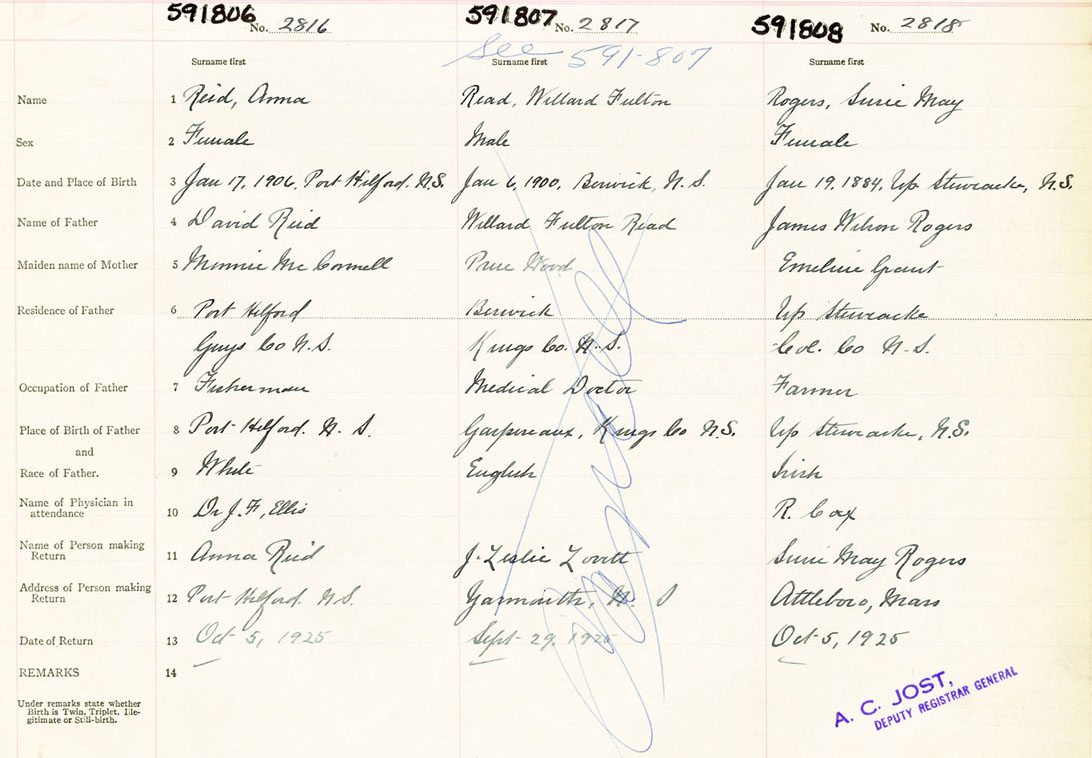 591806 No. 2816 591807 No. 2817 591808 No. 2818
See 591-807
Surname first Surname first Surname first
Name 1 Reid, Anna Read, Willard Fulton Rogers, Susie May
Sex 2 Female Male Female
Date and Place of Birth 3 Jan 17, 1906, Port Hilford. N.S. Jan 6, 1900, Berwick, N.S. Jan 19, 1884, Up Stewiacke, N.S.
Name of Father 4 David Reid Willard Fulton Read James Wilson Rogers
Maiden name of Mother 5 Minnie McConnell Prue Wood Emeline Grant
Residence of Father 6 Port Hilford Berwick Up Stewiacke
Guys Co N.S. Kings Co. N.S. Col. Co N.S.
Occupation of Father 7 Fisherman Medical Doctor Farmer
Place of Birth of Father 8 Port Hilford. N.S. Gaspereaux, Kings Co N.S. Up Stewiacke, N.S.
and
Race of Father. 9 White English Irish
Name of Physician in
attendance 10 Dr J.F, Ellis R. Cox
Name of Person making
Return 11 Anna Reid J. Leslie Lovitt Susie May Rogers
Address of Person making
Return 12 Port Hilford. N.S. Yarmouth, N. S Attleboro, Mass
Date of Return 13 Oct 5, 1925 Sept 29, 1925 Oct 5, 1925
REMARKS 14
Under remarks state whether
Birth is Twin, Triplet, Ille-
gitimate or Still-birth.
Cancelled
A. C. JOST,
DEPUTY REGISTRAR GENERAL